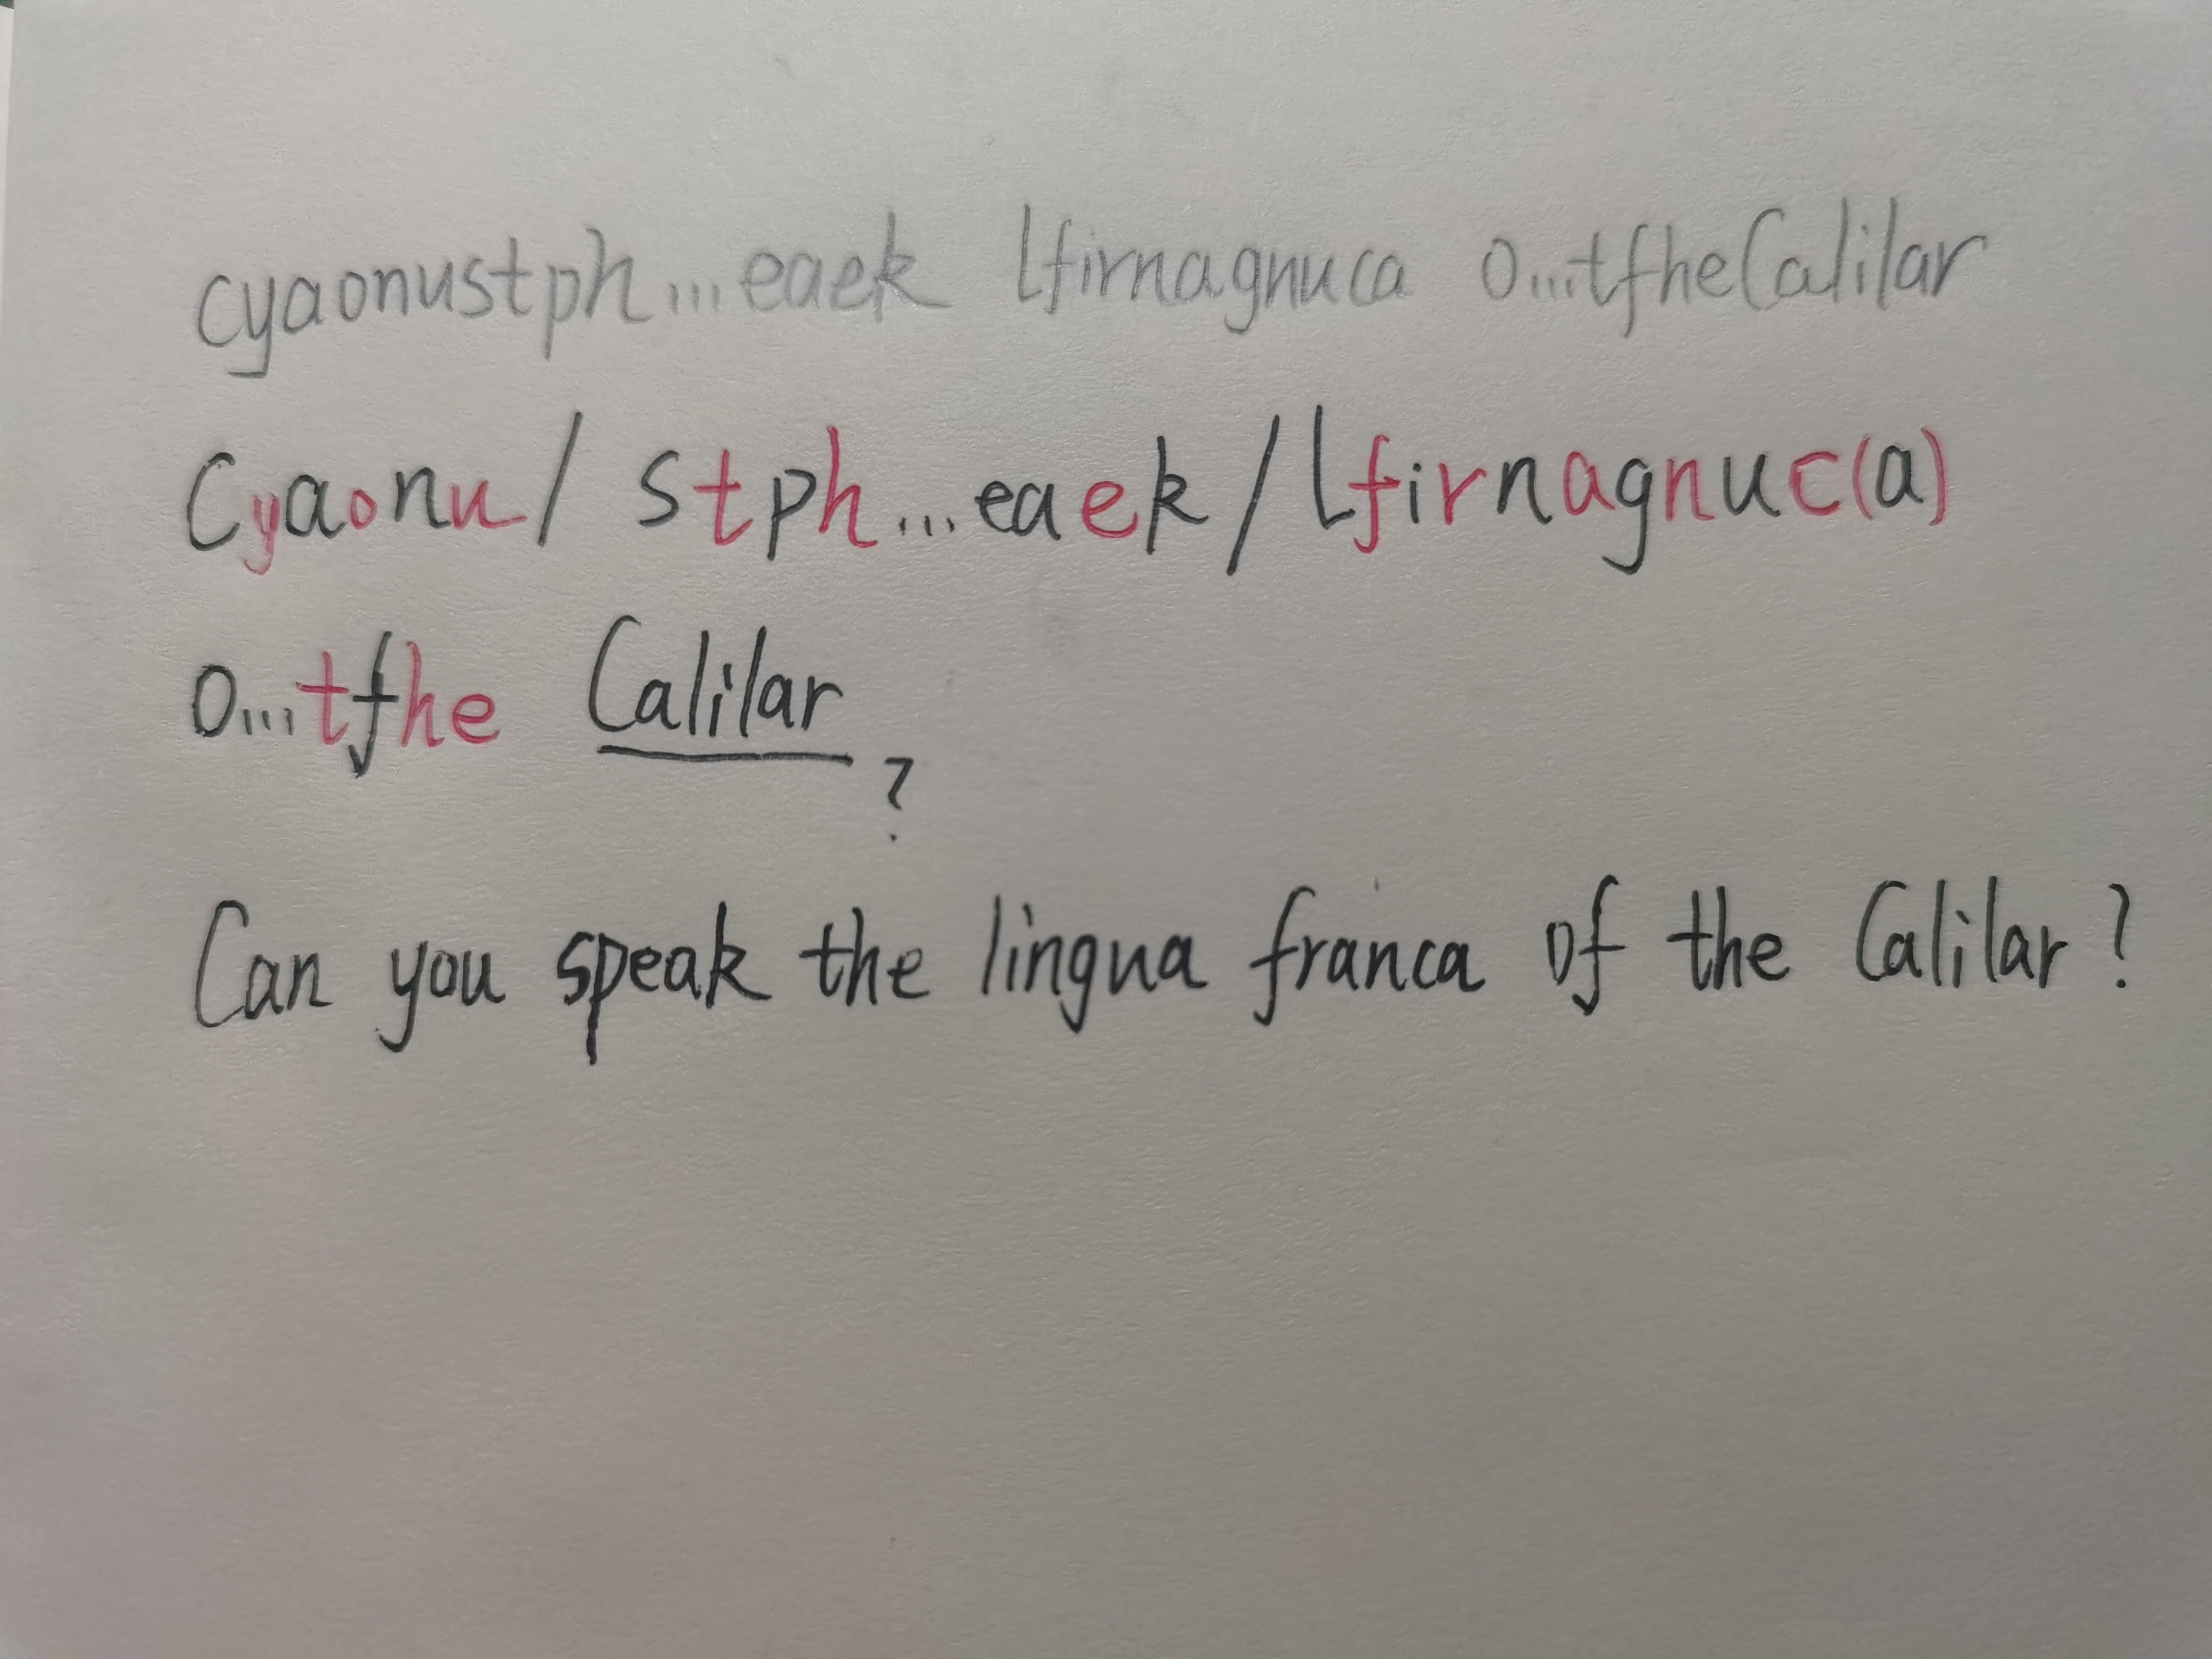 cyaonustph...eaek lfirnagnuca o...tfheCalilar
Cyaonu/ stph...eaek/lfirnagnuc(a)
o...tfhe Calilar
?
Can you speak the lingua franca of the Calilar?